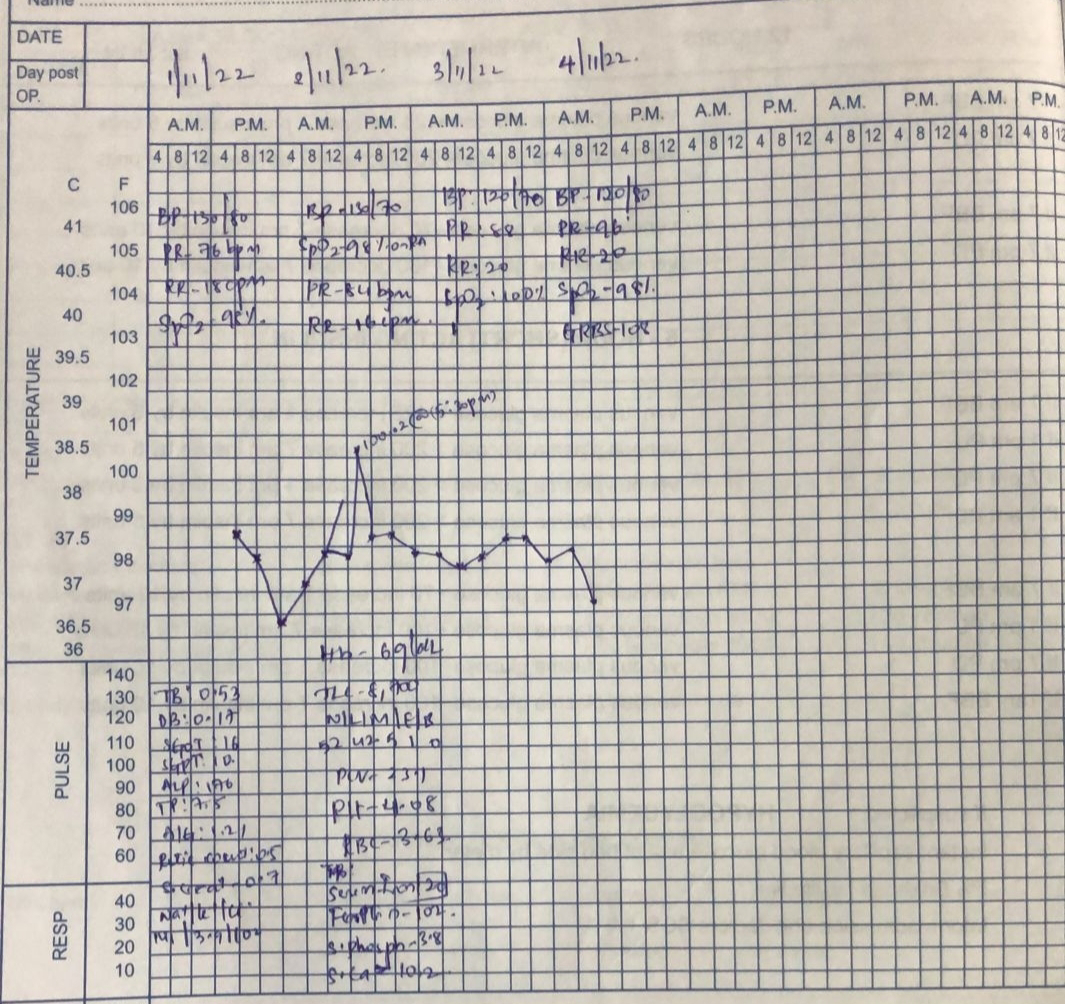 Name
DATE
1/11/22 2/11/22. 3/11/22 4/11/22.
Day post OP.
A.M. P.M. A.M. P.M. A.M. P.M. A.M. P.M. A.M. P.M. A.M. P.M. A.M. P.M.
4 8 12 4 8 12 4 8 12 4 8 12 4 8 12 4 8 12 4 8 12 4 8 12 4 8 12 4 8 12 4 8 12 4 8 12 4 8 12 4 8 12
C F
TEMPERATURE
106
41
105
40.5
104
40
103
39.5
102
39
101
38.5
100
38
99
37.5
98
37
97
36.5
36
BP-130/80
PR-76bpm
RR-18cpm
SpO2-98%.
BP-130/70
SpO2-98% on RA
PR-84bpm
RR-16cpm.
BP: 120/70
PR: 88
RR: 20
SpO2: 100%
BP-120/80
PR-96
RR-20
SpO2-98%.
GRBS-108
@(5:30pm)
PULSE
140
130
120
110
100
90
80
70
60
RESP
40
30
20
10
TB: 0.53
DB: 0.17
SGOT: 16
SGPT: 10
ALP: 190
TP: 7.5
A/G: 1.21
Retic count: 0.5
S.creat-0.7
Na+/K+/Cl-
/3.9/102
Hb-
TLC-
N/L/M/E/B
52 42 5 1 0
PCV-23.1
Plt-4.08
RBC-3.63
Serum Iron 20
102.
S.phosph-3.8
S.Ca- 10.2